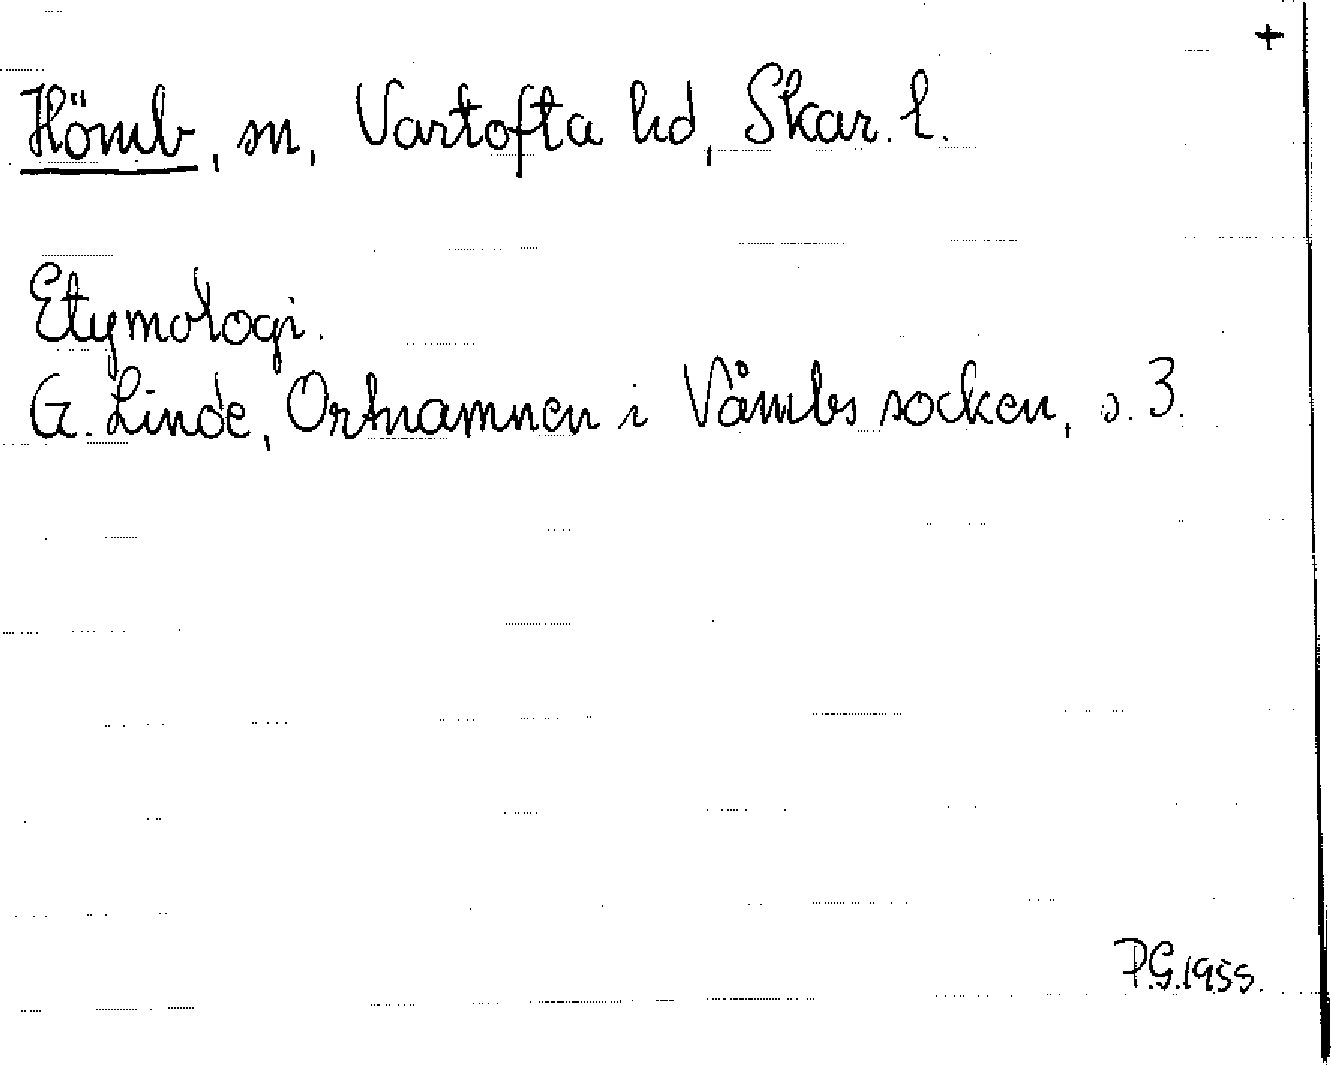 +
Hömb, sn, Vartofta hd, Skar. l.
Etymologi.
G. Linde, Ortnamnen i Våmbs socken, s. 3.
P.G. 1955.